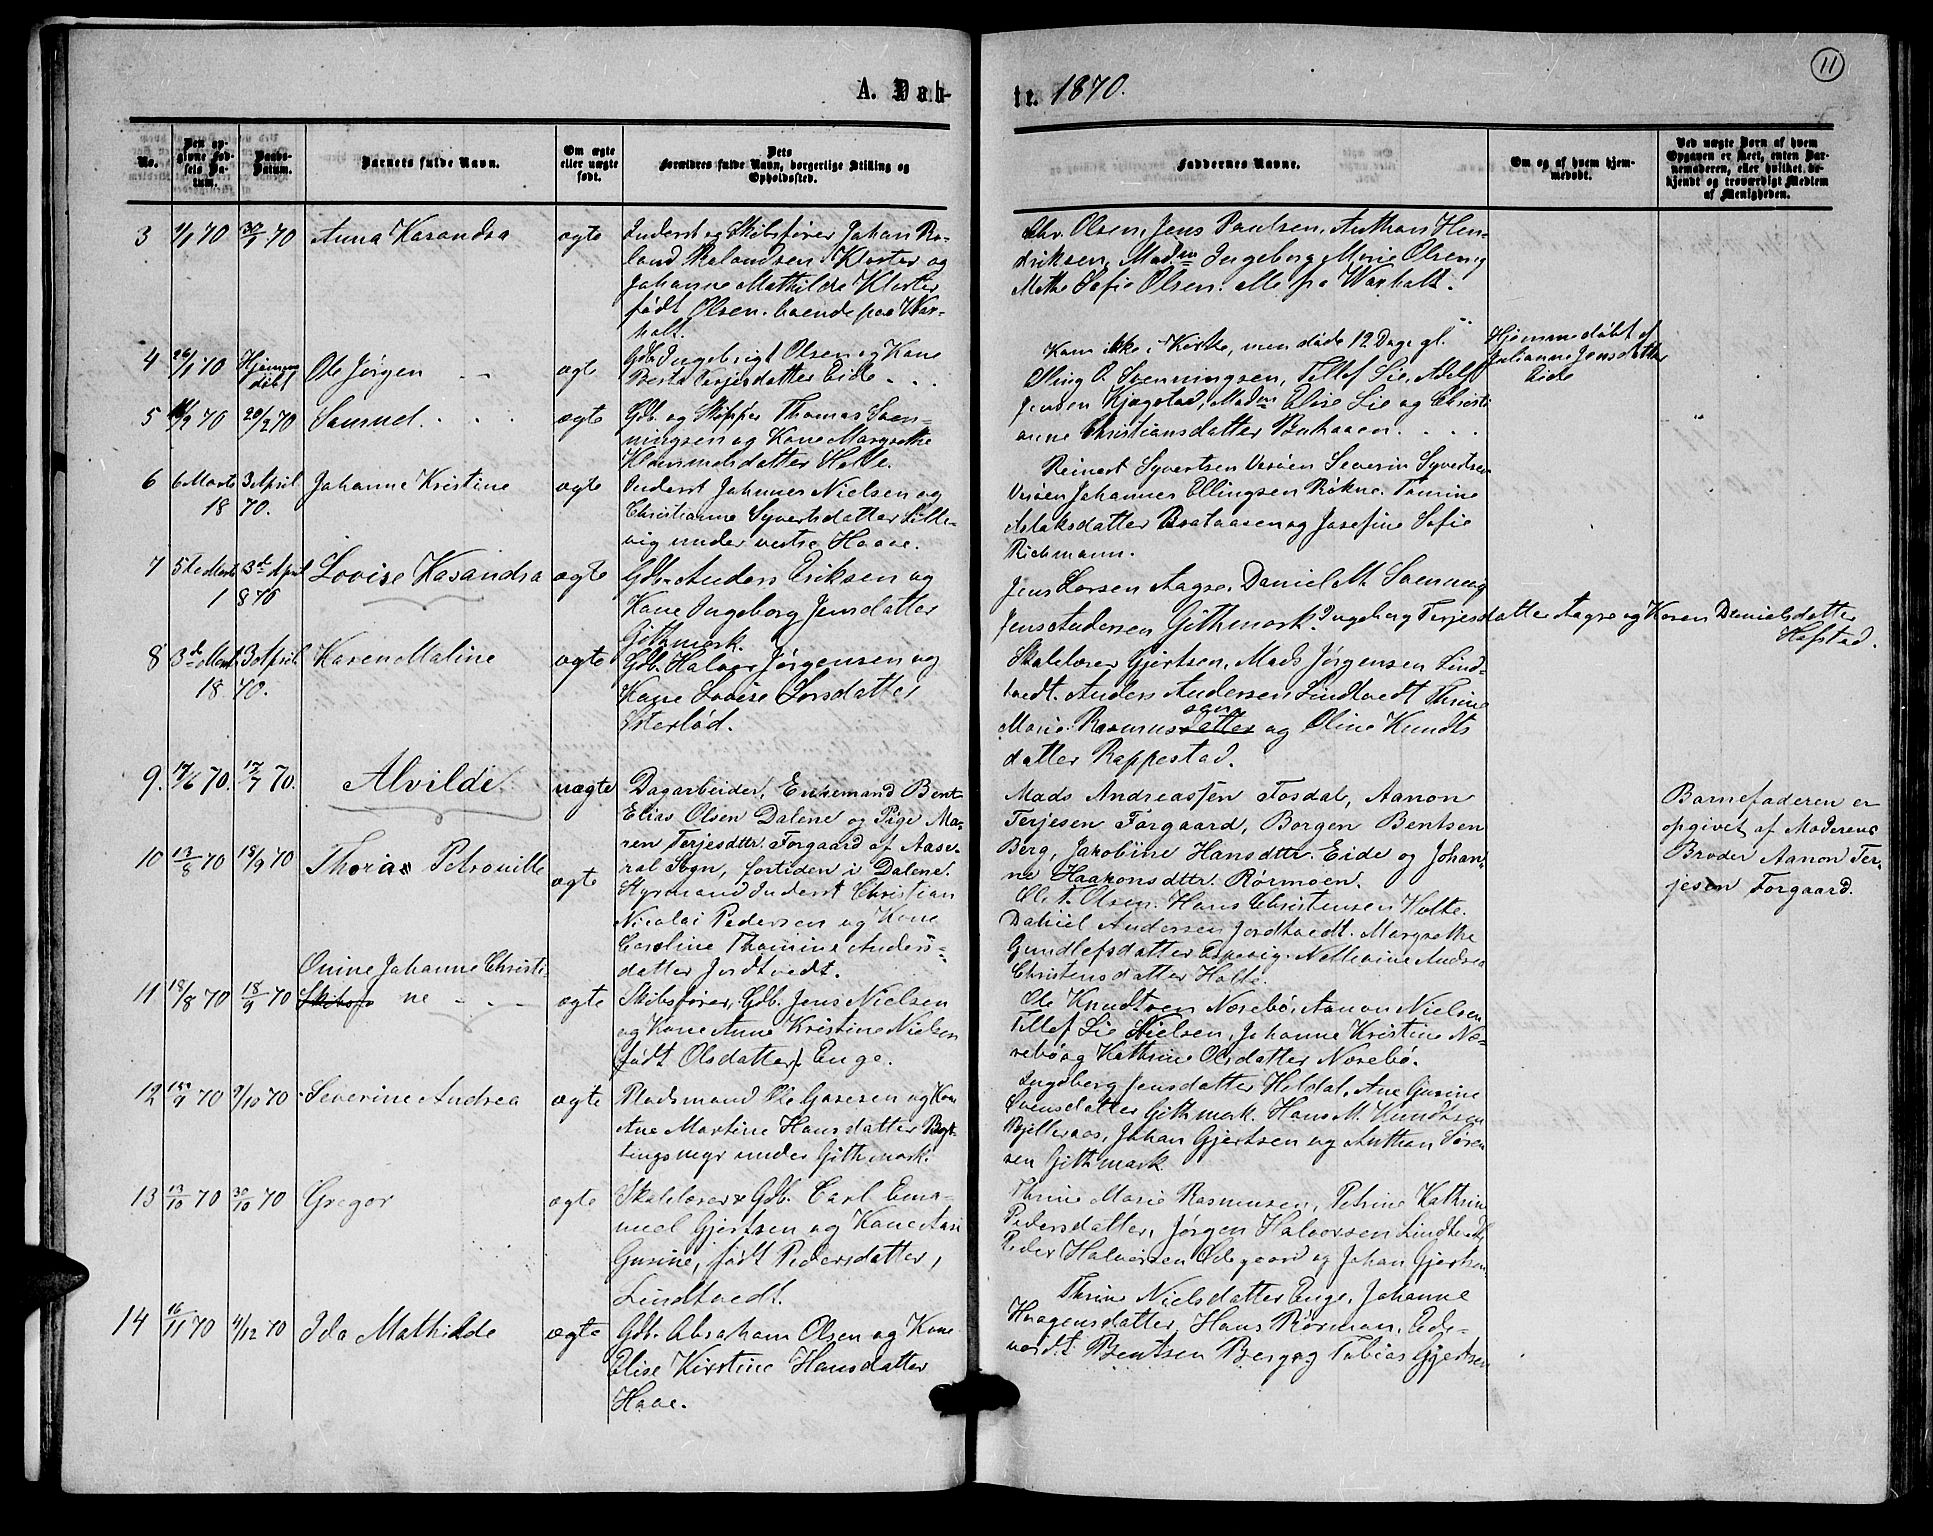 11
A. Døb-
te. 1870.
No.
Den op-
givne Fød-
sels Da-
tum.
Daabs-
Datum.
Barnets fulde Navn.
Om ægte
eller uægte
født.
Dets
Forældres fulde Navn, borgerlige Stilling og
Opholdssted.
Faddernes Navne.
Om og af hvem hjem-
medøbt.
Ved uægte Børn af hvem
Opgaven er skeet, enten Bar-
nemoderen, eller hvilket be-
kjendt og troværdigt Medlem
af Menigheden.
3 1/1 70 30/1 70 Anna Kasandra ægte
Inderst og Skibsfører Johan Ro-
land Rolandsen Kloster og
Johanne Mathilde Kloster
født Olsen. boende paa War-
holt.
Chr. Olsen, Jens Paulsen, Anthon Hen-
driksen, Madm Ingeborg Marie Olsen og
Mette Sofie Olsen. alle pa Warholt.
4 26/1 70 Hjemme
døbt Ole Jørgen ægte
Gdb. Ingebrigt Olsen og Kone
Berte Terjesdatter Eide
Kom ikke i Kirke, men døde 12 Dage gl.
Hjemmedøbt af
Julianne Jensdatter
Eide
5 20/2 70 Samuel ægte
Gdb. og Skipper Thomas Sven-
ningsen og Kone Margrethe
Klemmetsdatter Holte.
Elling O. Svenningsen, Tellef Lie, Adolf
Jensen Kjægstad, Madm Elise Lie og Christi
anne Christiansdatter Buhaaen
6 6 Marts 3 April
1870. Johanne Kristine ægte
Inderst Johannes Nielsen og
Christianne Syvertsdatter Lille-
vig under vestre Haave.
Reinert Syvertsen Verøen Severin Syvertsen
Verøen Johannes Ellingsen Røkne. Tomine
Aslaksdatter Brataasen og Josefine Sofie
Richmann.
7 5te Marts 3d April
1870 Lovise Kasandra ægte
Gdb. Anders Eriksen og
Kone Ingeborg Jensdatter
Githmark.
Jens Larsen Aagre, Daniel M. Svennevig
Jens Andersen Githmark. Ingeborg Terjesdatter Aagre og Karen Danielsdatter
Hofstad.
8 3d Marts 3 April
1870. Karen Maline ægte
Gdb. Halvor Jørgensen og
Kone Lovise Larsdatter
Østerlød.
Skolelærer Gjertsen, Mads Jørgensen Lind-
tvedt. Anders Andersen Lindtvedt Thrine
Marie Rasmusdatter sen og Oline Knudts
datter Rappestad.
9. 17/6 70. 17/7 70. Alvilde. uægte
Dagarbeider, Enkemand Bent
Elias Olsen Dalene og Pige Ma-
ren Terjesdttr. Forgaard af Aase-
ral Sogn, fortiden i Dalene.
Mads Andreassen Fosdal, Aanon
Terjesen Forgaard, Borgen Bentsen
Berg, Jakobine Hansdttr. Eide og Johan-
ne Haakonsdttr. Rørmoen.
Barnefaderen er
opgivet af Moderens
Broder Aanon Ter-
jesen Forgaard.
10 13/8 70 18/9 70 Thoria Petronille ægte
Styrmand Inderst Christian
Nicolai Pedersen og Kone
Caroline Thomine Anders-
datter Jordtvedt.
Ole T. Olsen. Hans Christensen Holte.
Daniel Andersen Jordtvedt. Margrethe
Gundlefsdatter Espevig. Nathanine Andrea
Christensdatter Holte.
11 18/8 70 18/9 70 Onine Johanne Christi-
Skibsfø ne ægte
Skibsfører, Gdb. Jens Nielsen
og Kone Anne Kristine Nielsen
født Olsdatter, Enge.
Ole Knudtsen Norebø, Aanon Nielsen
Tellef Lie Nielsen, Johanne Kristine No-
rebø og Kathrine Olsdatter Norebø.
12 9/10 70 Severine Andrea ægte
Pladsmand Ole Gosesen og Kone
Ane Martine Hansdatter Byt-
tingsmyr under Githmark.
Ingeborg Jensdatter Helldal, Ane Gusine
Svensdatter Githmark. Hans M. Knudtsen
Bjelleraas, Johan Gjertsen og Anthon Søren
sen Githmark.
13 13/10 70 30/10 70 Gregor ægte
Skolelærer & Gdb. Carl Ema-
nuel Gjertsen og Kone Aasi
Gusine, født Pedersdatter,
Lindtvedt.
Thrine Marie Rasmusen, Petrine Kathrine
Pedersdatter, Jørgen Halvorsen Lindtvedt,
Peder Halvorsen Ødegaard og Johan Gjertsen.
14 16/11 70 4/12 70 Ida Mathilde ægte
Gdb. Abraham Olsen og Kone
Elise Kirstine Hansdatter
Haave.
Thrine Nielsdatter Enge, Johanne
Haagensdatter, Hans Rørman, Ede-
vardt Bentsen Berg og Tobias Gjertsen